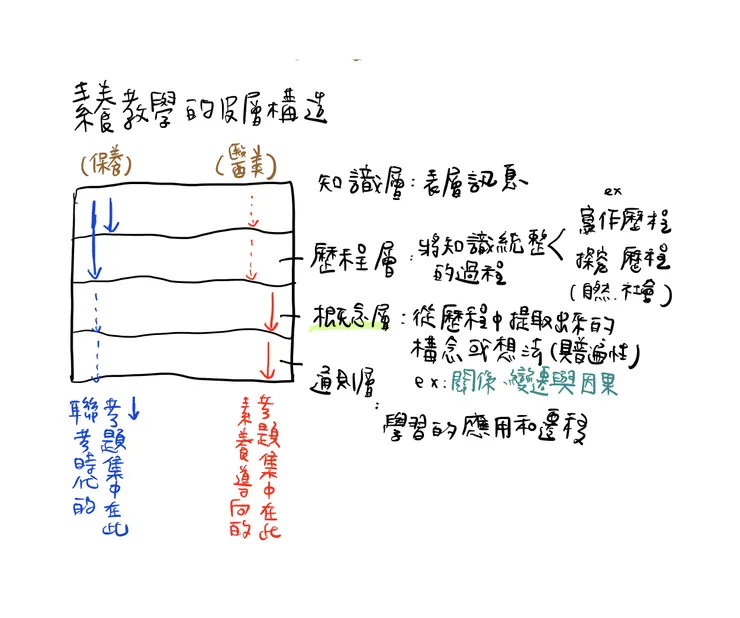 素養教學的皮層構造
(保養)
(醫美)
知識層:表層訊息
歷程層:將知識統整
的過程
ex
寫作歷程
探究歷程
(自然、社會)
概念層:從歷程中提取出來的
構念或想法(具普遍性)
ex:關係、變遷與因果
通則層:
學習的應用和遷移
聯考時代的
考題集中在此
素養導向的
考題集中在此